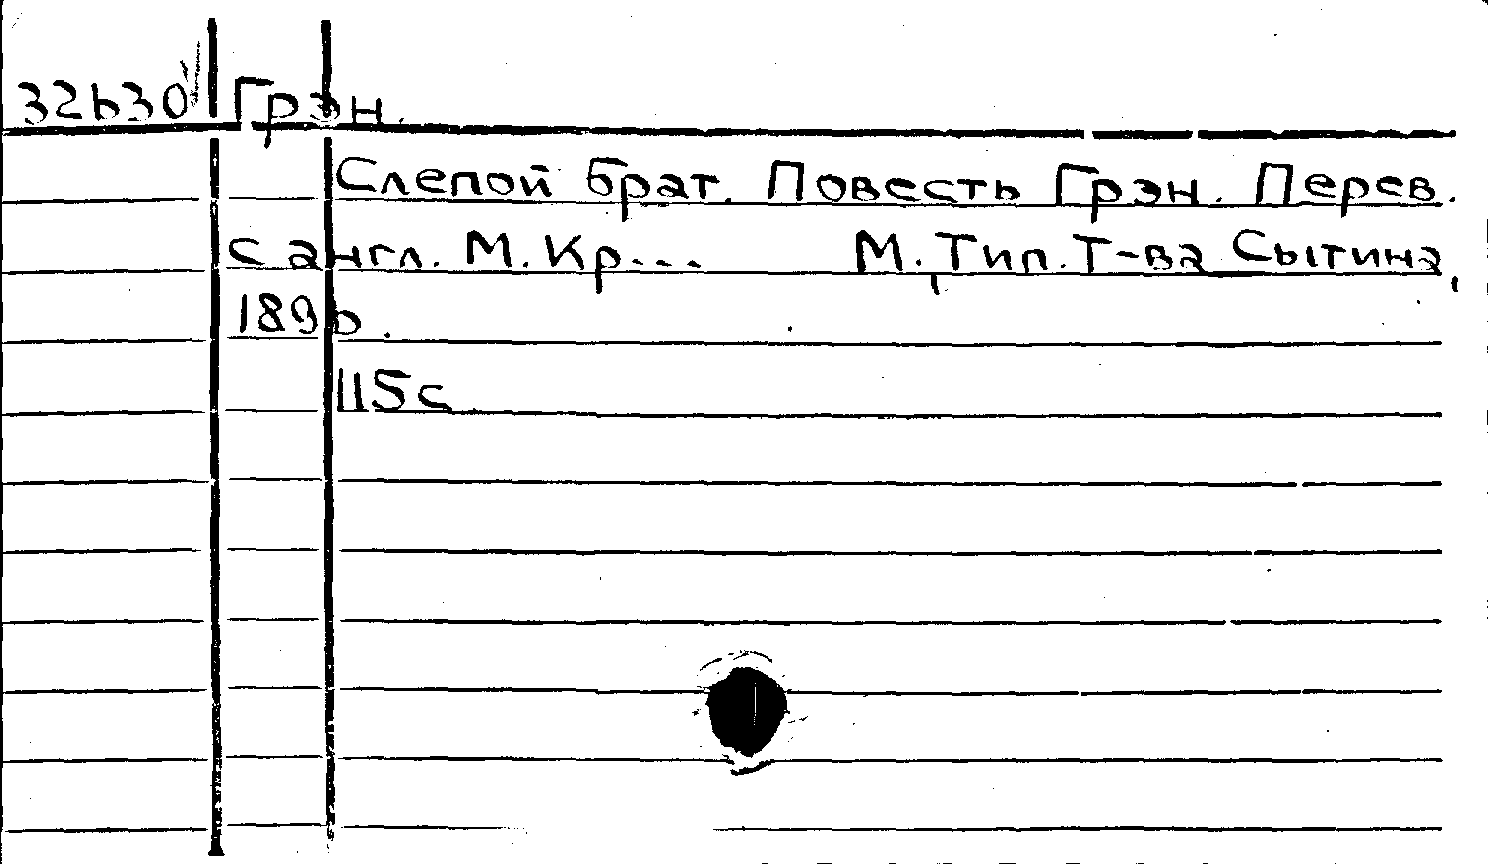 32630 Грэн.
Слепой брат. Повесть Грэн. Перев.
с англ. М. Кр... М., Тип. Т-ва Сытина,
1896.
115с